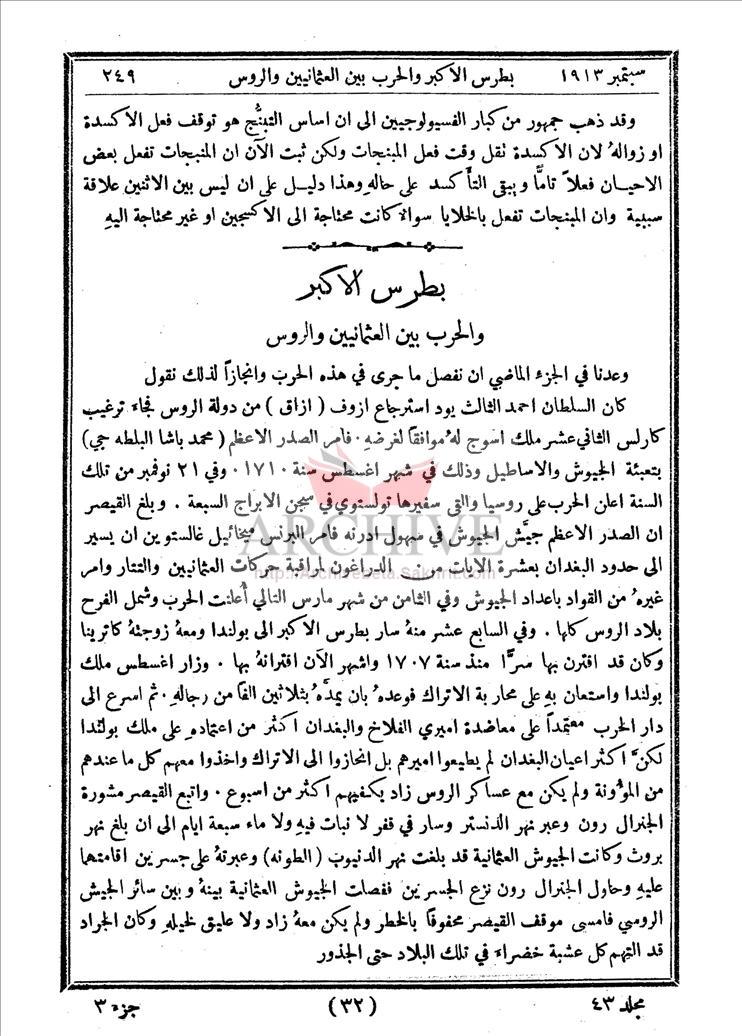 سبتمبر ١٩١٣ بطرس الاكبر والحرب بين العثمانيين والروس ٢٤٩
وقد ذهب جمهور من كبار الفسيولوجيين الى ان اساس التبنُّج هو توقف فعل الاكسدة
او زوالهُ لان الاكسدة تقل وقت فعل المبنجات ولكن ثبت الآن ان المنبجات تفعل بعض
الاحيان فعلاً تامًّا ويبقى التأكسد على حالهِ وهذا دليل على ان ليس بين الاثنين علاقة
سببية وان المبنجات تفعل بالخلايا سواءٌ كانت محتاجة الى الاكسجين او غير محتاجة اليهِ
بطرس الاكبر
والحرب بين العثمانيين والروس
وعدنا في الجزء الماضي ان نفصل ما جرى في هذه الحرب وانجازاً لذلك نقول
كان السلطان احمد الثالث يود استرجاع ازوف ( ازاق ) من دولة الروس فجاء ترغيب
كارلس الثاني عشر ملك اسوج لهُ موافقاً لغرضهِ . فامر الصدر الاعظم ( محمد باشا البلطه جي )
بتعبئة الجيوش والاساطيل وذلك في شهر اغسطس سنة ١٧١٠ . وفي ٢١ نوفمبر من تلك
السنة اعلن الحرب على روسيا والقى سفيرها تولستوي في سجن الابراج السبعة . وبلغ القيصر
ان الصدر الاعظم جيَّش الجيوش في سهول ادرنه فامر البرنس ميخائيل غالستوين ان يسير
الى حدود البغدان بعشرة الايات من الدراغون لمراقبة حركات العثمانيين والتتار وامر
غيرهُ من القواد باعداد الجيوش وفي الثامن من شهر مارس التالي أُعلنت الحرب وشمل الفرح
بلاد الروس كلها . وفي السابع عشر منهُ سار بطرس الاكبر الى بولندا ومعهُ زوجتهُ كاترينا
وكان قد اقترن بها سرًّا منذ سنة ١٧٠٧ واشهر الآن اقترانهُ بها . وزار اغسطس ملك
بولندا واستعان بهِ على محاربة الاتراك فوعدهُ بان يمدَّهُ بثلاثين الفًا من رجالهِ . ثم اسرع الى
دار الحرب معتمداً على معاضدة اميري الفلاخ والبغدان اكثر من اعتمادهِ على ملك بولندا
لكنَّ اكثر اعيان البغدان لم يطيعوا اميرهم بل انحازوا الى الاتراك واخذوا معهم كل ما عندهم
من المؤونة ولم يكن مع عساكر الروس زاد يكفيهم اكثر من اسبوع . واتبع القيصر مشورة
الجنرال رون وعبر نهر الدنستر وسار في قفر لا نبات فيهِ ولا ماء سبعة ايام الى ان بلغ نهر
بروث وكانت الجيوش العثمانية قد بلغت نهر الدنيوب ( الطونه ) وعبرتهُ على جسرين اقامتهما
عليهِ وحاول الجنرال رون نزع الجسرين ففصلت الجيوش العثمانية بينهُ وبين سائر الجيش
الروسي فامسى موقف القيصر محفوفًا بالخطر ولم يكن معهُ زاد ولا عليق لخيلهِ وكان الجراد
قد التهم كل عشبة خضراء في تلك البلاد حتى الجذور
مجلد ٤٣ (٣٢) جزء ٣
ARCHIVE
http://Archivebeta.Sakhrit.com